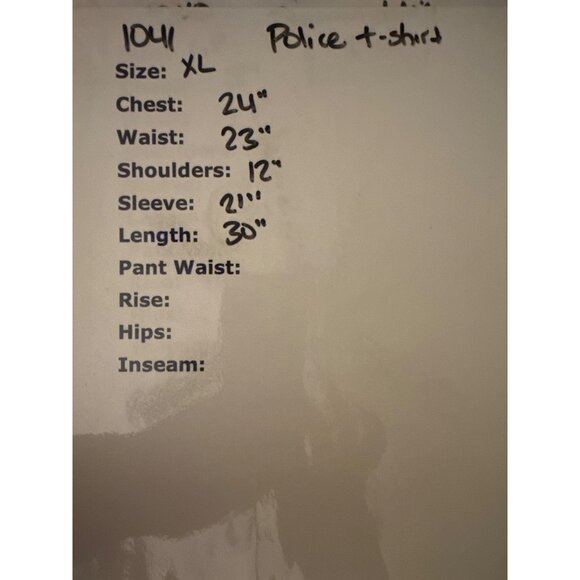 1041 Police t-shirt
Size: XL
Chest: 24"
Waist: 23"
Shoulders: 12"
Sleeve: 21"
Length: 30"
Pant Waist:
Rise:
Hips:
Inseam: